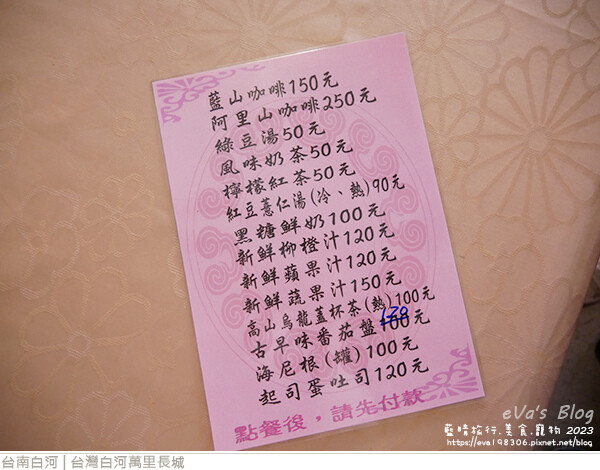 藍山咖啡150元
阿里山咖啡250元
綠豆湯50元
風味奶茶50元
檸檬紅茶50元
紅豆薏仁湯(冷、熱)90元
黑糖鮮奶100元
新鮮柳橙汁120元
新鮮蘋果汁120元
新鮮蔬果汁150元
高山烏龍蓋杯茶(熱)100元
古早味番茄盤100元 120
海尼根(罐)100元
起司蛋吐司120元
點餐後，請先付款
eVa's Blog
藍晴旅行.美食.寵物 2023
https://eva198306.pixnet.net/blog
台南白河 | 台灣白河萬里長城